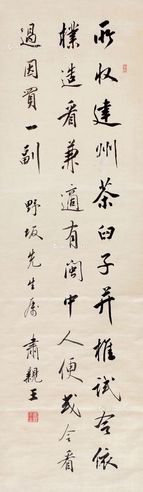 所收建州茶臼子并椎試令依
樣造看兼適有閩中人便或令看
過因買一副
野坂先生属
肅親王